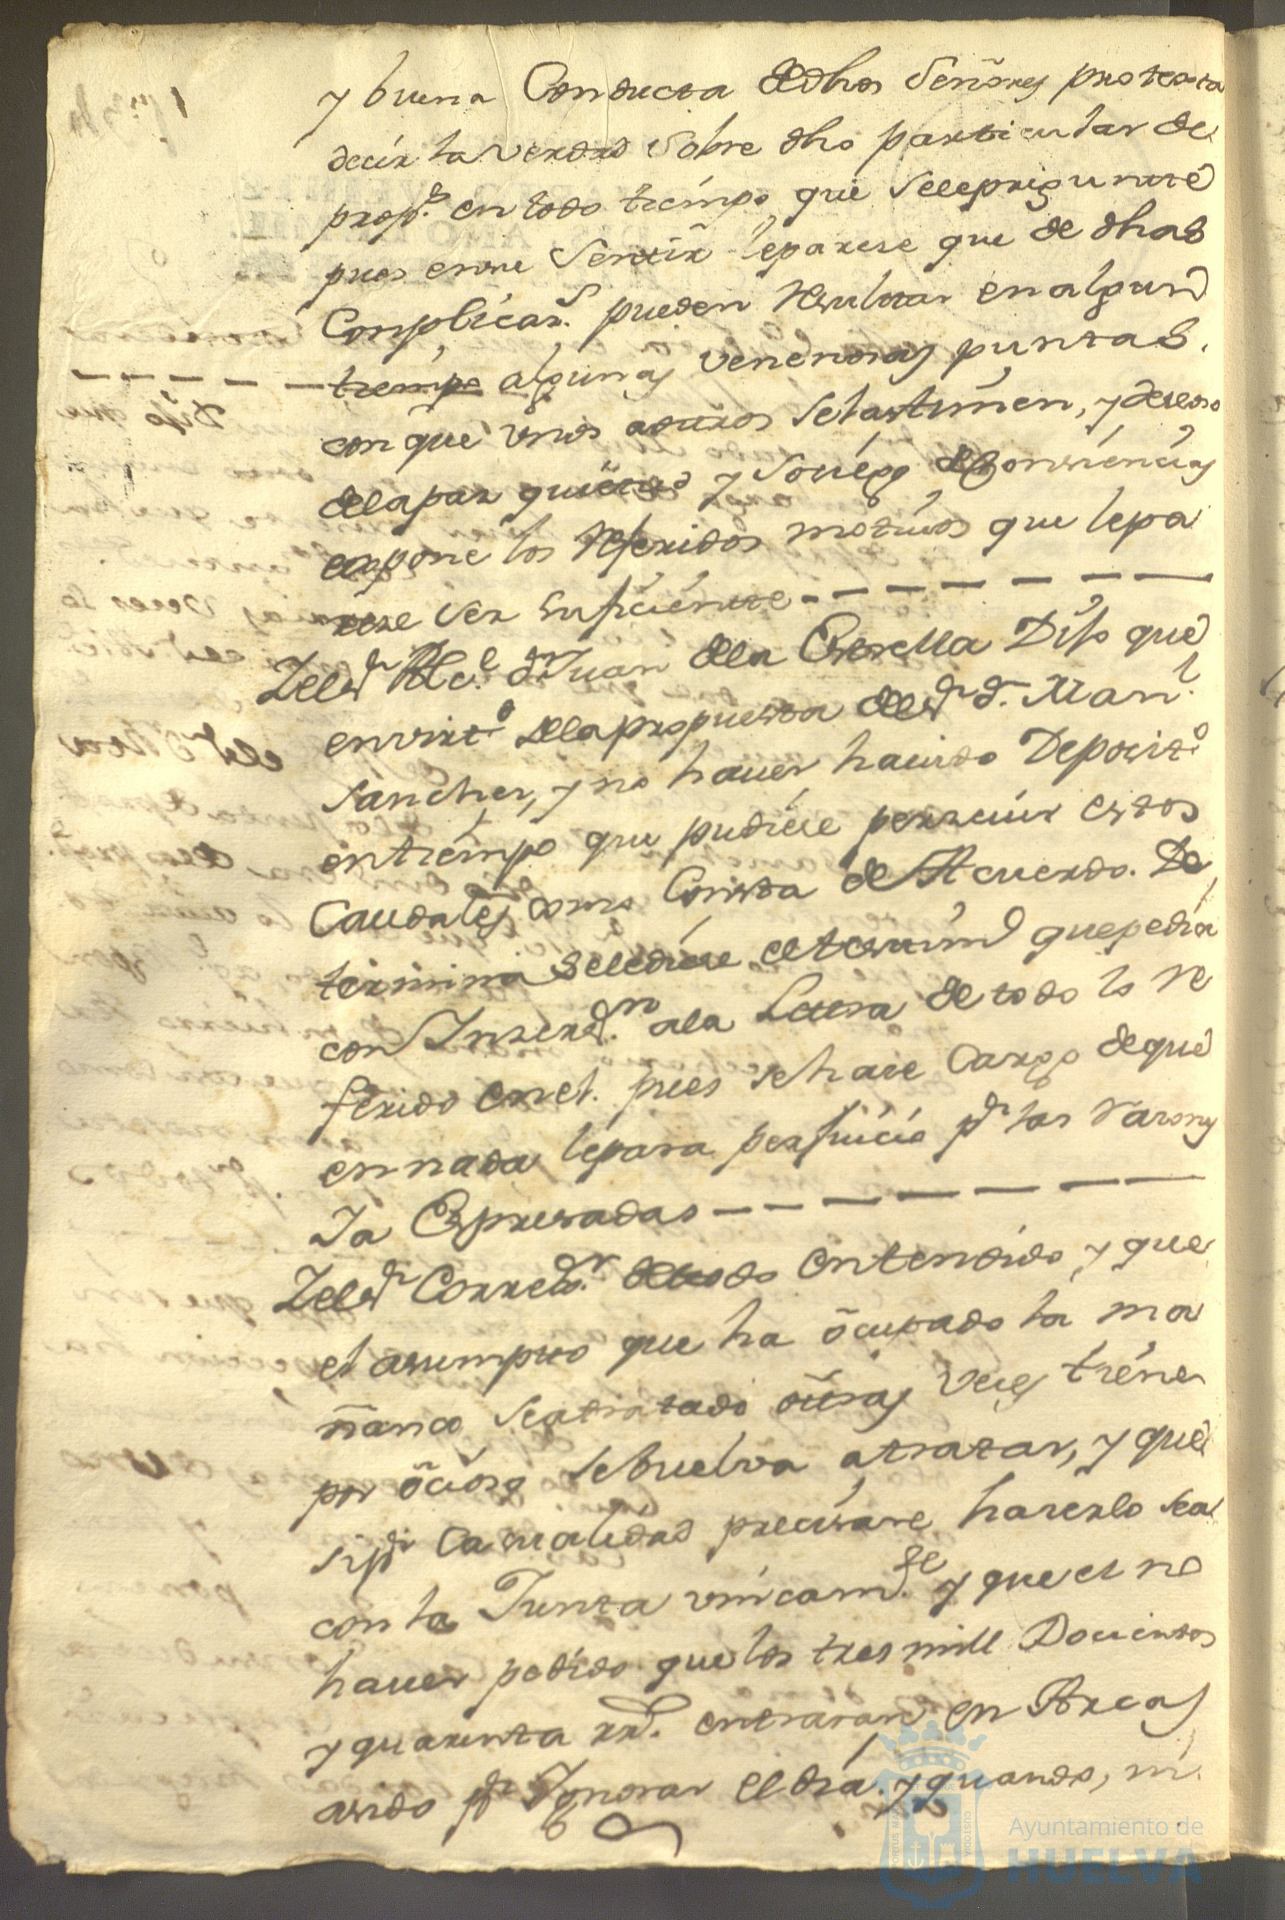 y buena Conducta de dhos Señores protexta
decir la verdad sobre dho particular de
prosp.r en todo tiempo que sele preguntare
pues en mi sentir le parese que de dhas
Complicaz.s pueden resultar en algun
tiempo algunas venenosas puntas.
con que unos a otros se lastimen, y deseoso
de la paz quietud y sosiego de consiencias
expone los referidos motivos que le pa
rese ser suficientes
Y el s.r Alc.e d.n Juan de la Estrella Dijo que
en virt.d de la propuesta del s.r d.n Man.l
Sanches, y no haver havido Deposit.o
en tiempo que pudiese persivir estos
Caudales como Consta de Acuerdo. De
termina sele diese el testim.o que pedia
con Inserz.on a la Letra de todo lo re
ferido en el. pues se hace Cargo de que
en nada le para perjuicio p.r las rasones
Ya Espresadas
Y el s.r Corred.r de todo entendido, y que
el asumpto que ha ocupado la ma
ñana se a tratado otras veces tiene
por ocioso se buelva a tratar, y que
si p.r Casualidad precisare haserlo sea
con la Junta unicam.te y que el no
haver pedido que los tres mill Docientos
y quarenta rr.s entraran en Arcas
a sido p.r Ygnorar el dia y quando, ni
Ayuntamiento de
HUELVA